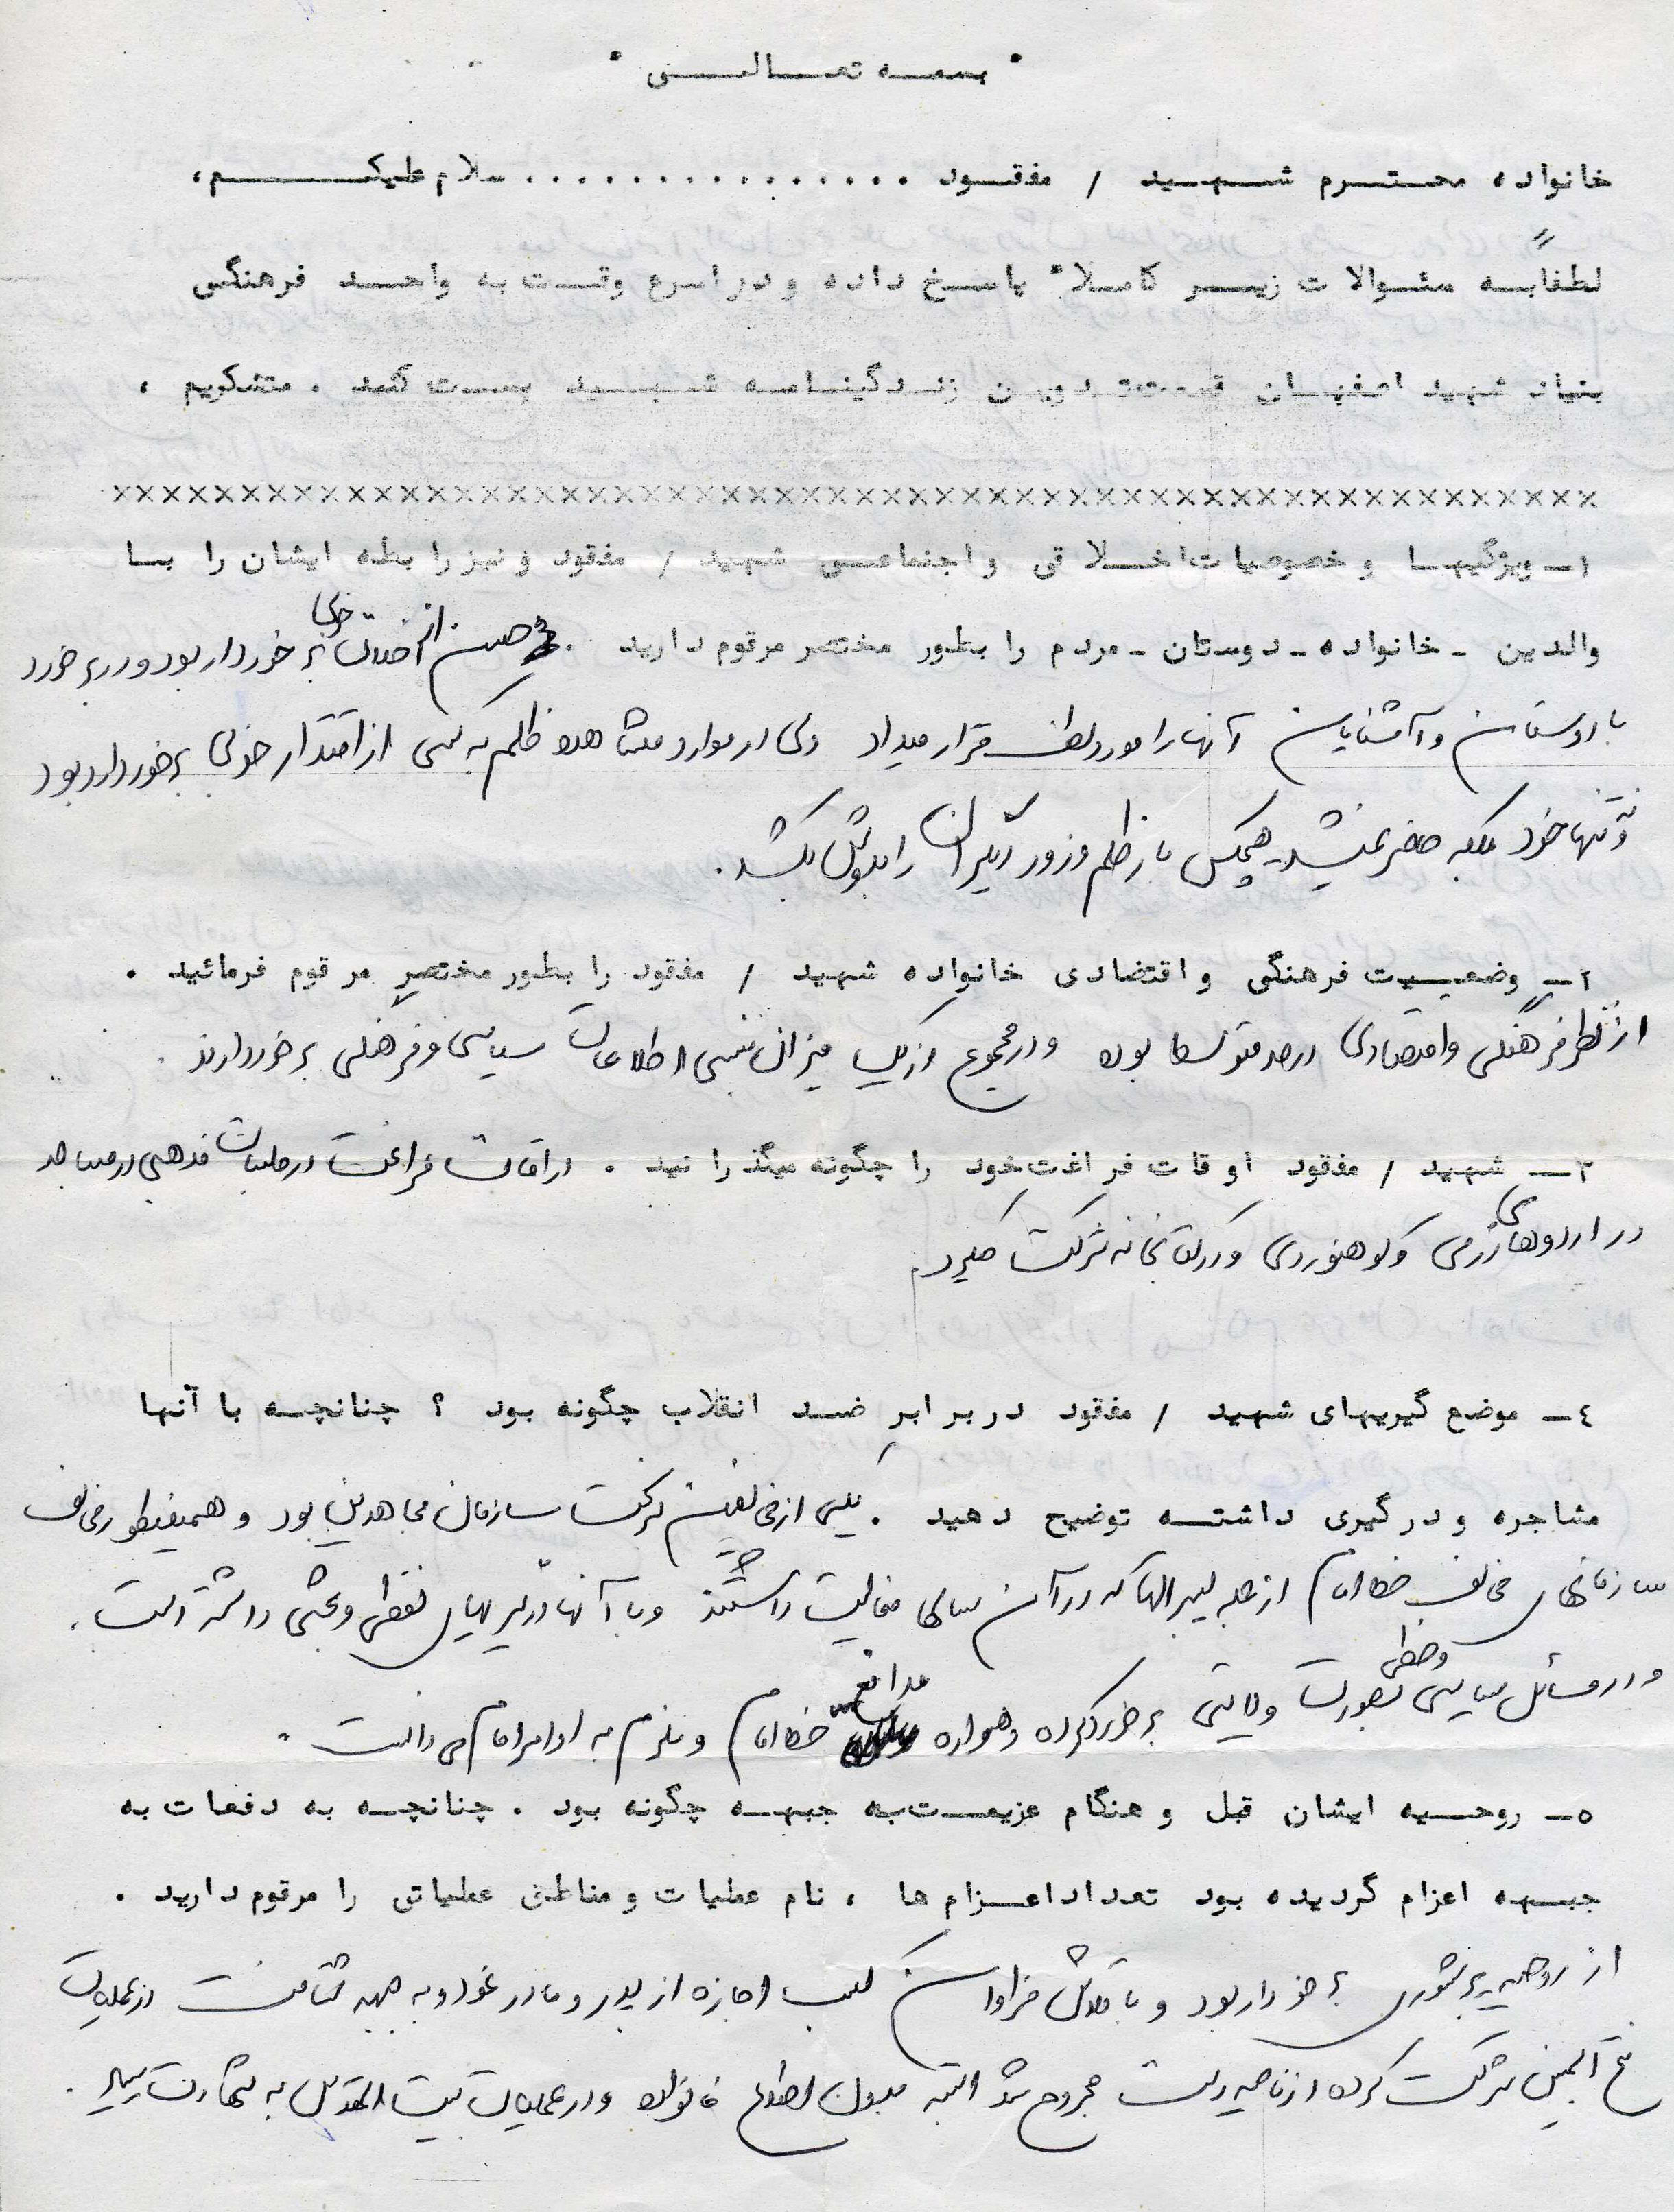 " بسمه تعالی "
خانواده محترم شهید / مفقود ................ سلام علیکم،
لطفاً به سئوالات زیر کاملا" پاسخ داده و در اسرع وقت به واحد فرهنگی
بنیاد شهید اصفهان قسمت تدوین زندگینامه شهید پست کنید . متشکریم ،
××××××××××××××××××××××××××××××××××××××××××××××××××××××××
۱ـ ویژگیها و خصوصیات اخلاقی و اجتماعی شهید / مفقود و نیز رابطه ایشان را با
والدین ـ خانواده ـ دوستان ـ مردم را بطور مختصر مرقوم دارید . حسن از اخلاق خوبی برخوردار بود و در برخورد
با دوستان و آشنایان آنها را مورد لطف قرار میداد ولی در موارد مشاهده ظلم به کسی از اقتدار خوبی برخوردار بود
و نه تنها خود بلکه حاضر نمیشد هیچکس بار ظلم و زور دیگران را بدوش بکشد .
۲ـ وضعییت فرهنگی و اقتضادی خانواده شهید / مفقود را بطور مختصر مرقوم فرمائید .
از نظر فرهنگی و اقتصادی در حد متوسط بوده و در مجموع از یک میزان نسبی اطلاعات سیاسی و فرهنگی برخوردارند .
۳ـ شهید / مفقود اوقات فراغت خود را چگونه میگذرانید . در اوقات فراغت در جلسات مذهبی در مساجد
در اردوهای رزمی و کوهنوردی و در کتابخانه شرکت میکرد
٤ـ موضع گیریهای شهید / مفقود در برابر ضد انقلاب چگونه بود ؟ چنانچه با آنها
مشاجره و درگیری داشته توضیح دهید . یکی از مخالفین سرسخت سازمان مجاهدین بود و همینطور مخالف
سازمانهای مخالف خط امام از جمله لیبرالها که در آن سالها فعالیت داشتند و با آنها درگیریهای لفظی و بحثی داشته است .
و در مسائل سیاسی و خطی بصورت ولایتی برخورد کرده و همواره مدافع خط امام و ملزم به اوامر امام می دانست .
۵ـ روحیه ایشان قبل و هنگام عزیمت به جبهه چگونه بود . چنانچه به دفعات به
جبهه اعزام گردیده بود تعداد اعزام ها ، نام عملیات و مناطق عملیاتی را مرقوم دارید .
از روحیه پرشوری برخوردار بود و با تلاش فراوان کسب اجازه از پدر و مادر نمود و به جبهه شتافت در عملیات
فتح المبین شرکت کرده از ناحیه دست مجروح شد البته بدون اطلاع خانواده و در عملیات بیت المقدس به شهادت رسید .